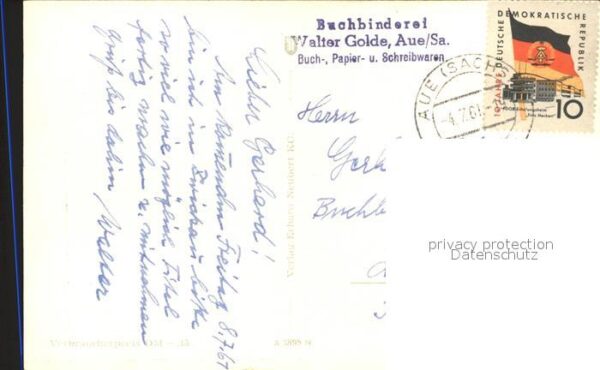 Buchbinderei
Walter Golde, Aue/Sa.
Buch-, Papier- u. Schreibwaren
10 JAHRE DEUTSCHE DEMOKRATISCHE REPUBLIK
10
AUE (SACHS)
-4.7.61.-
Herrn
Buchb
Lieber Gerhard!
Am kommenden Freitag 8.7.61
bin ich in Zwickau bitte
so viel wie möglich Titel
fertig machen u. mitnehmen
Gruß bis dahin Walter
Verlag Erhard Neubert KG.
Verbraucherpreis DM -,15
privacy protection
Datenschutz